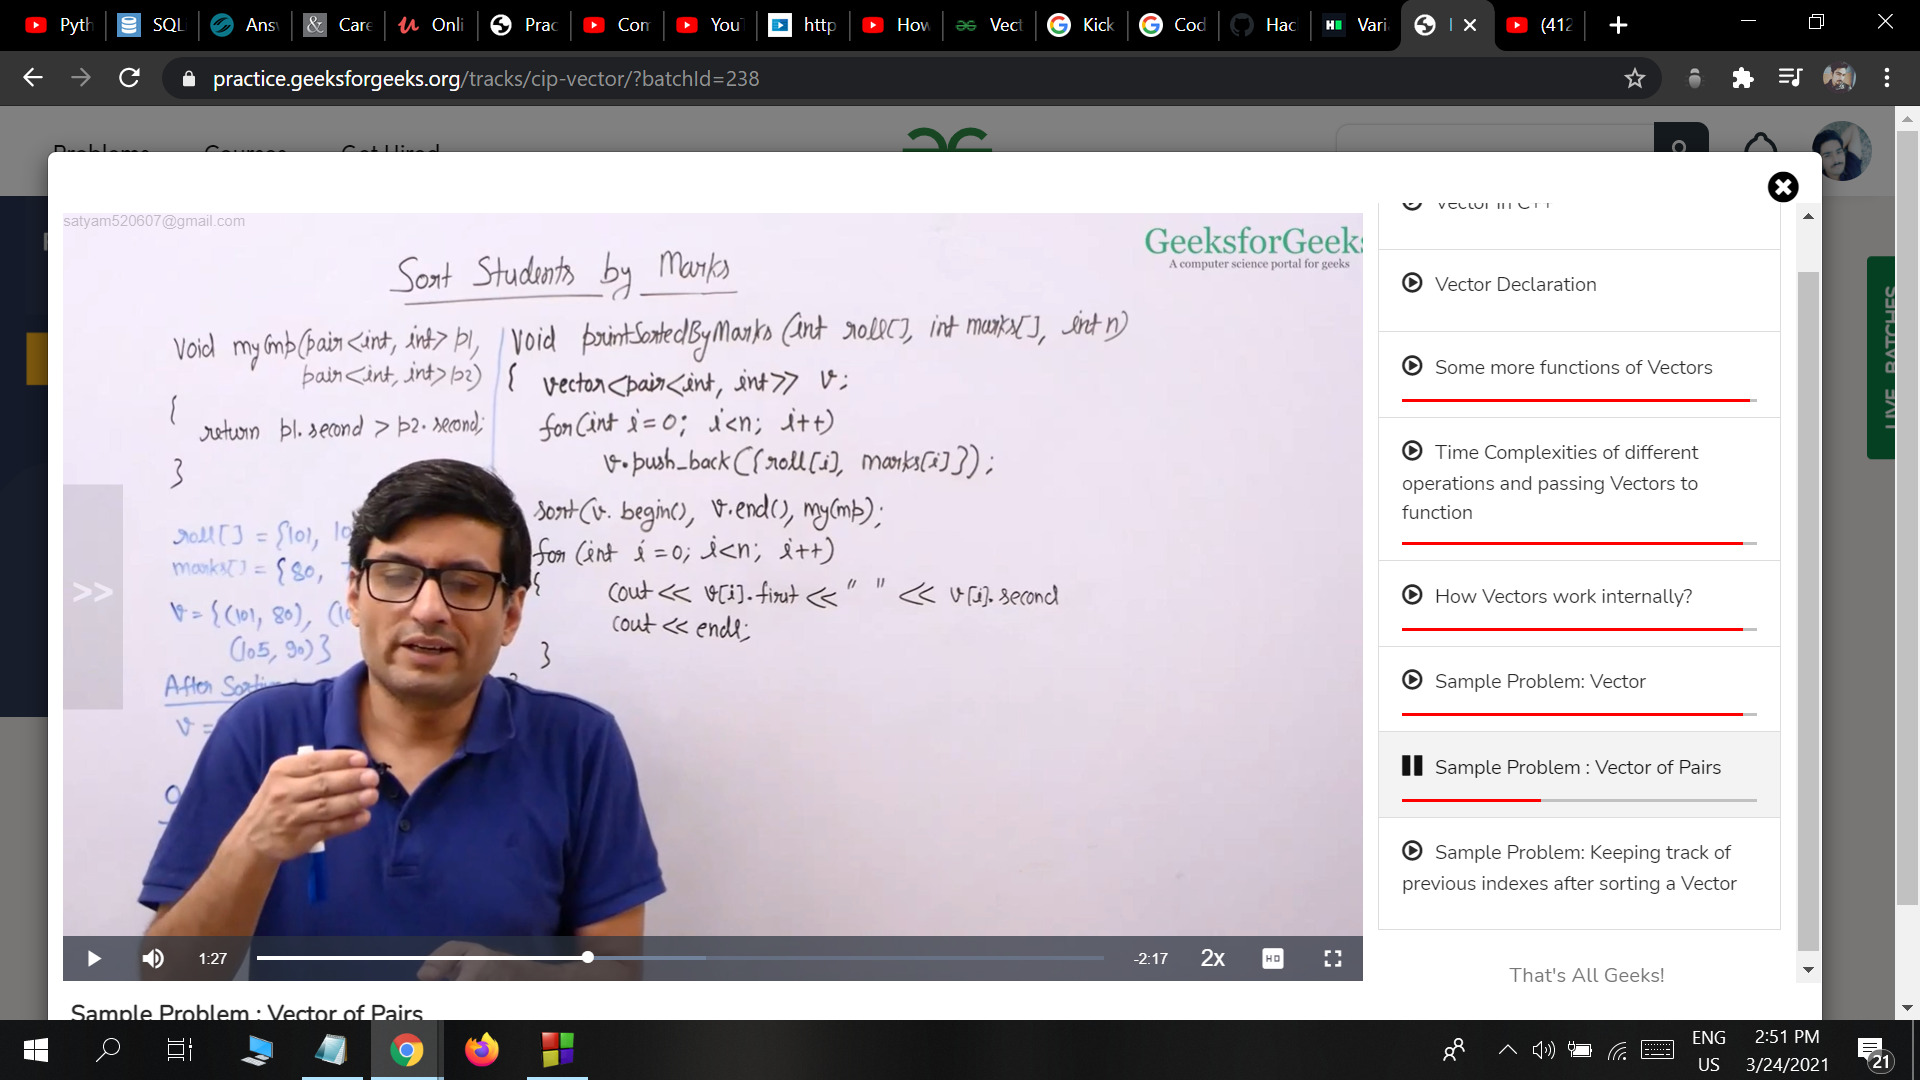 Pyth
SQLi
Ansv
Care
Onli
Prac
Com
YouT
http
How
Vect
Kick
Cod
Hac
Vari
(412
practice.geeksforgeeks.org/tracks/cip-vector/?batchId=238
Problems Courses Get Hired
satyam520607@gmail.com
GeeksforGeeks
A computer science portal for geeks
Sort Students by Marks
Void myCmp(pair<int, int> p1,
pair<int, int> p2)
{
return p1.second > p2.second;
}
roll[] = {101, 10
marks[] = {80,
v = {(101, 80), (10
(105, 90)}
After Sorting
v =
Void printSortedByMarks (int roll[], int marks[], int n)
{ vector<pair<int, int>> v;
for(int i = 0; i<n; i++)
v.push_back({roll[i], marks[i]});
sort(v.begin(), v.end(), myCmp);
for (int i = 0; i<n; i++)
{ cout << v[i].first << " " << v[i].second
cout << endl;
}
>>
1:27
-2:17
2x
HD
Sample Problem : Vector of Pairs
Vector in C++
Vector Declaration
Some more functions of Vectors
Time Complexities of different
operations and passing Vectors to
function
How Vectors work internally?
Sample Problem: Vector
Sample Problem : Vector of Pairs
Sample Problem: Keeping track of
previous indexes after sorting a Vector
That's All Geeks!
LIVE BATCHES
ENG
US
2:51 PM
3/24/2021
21